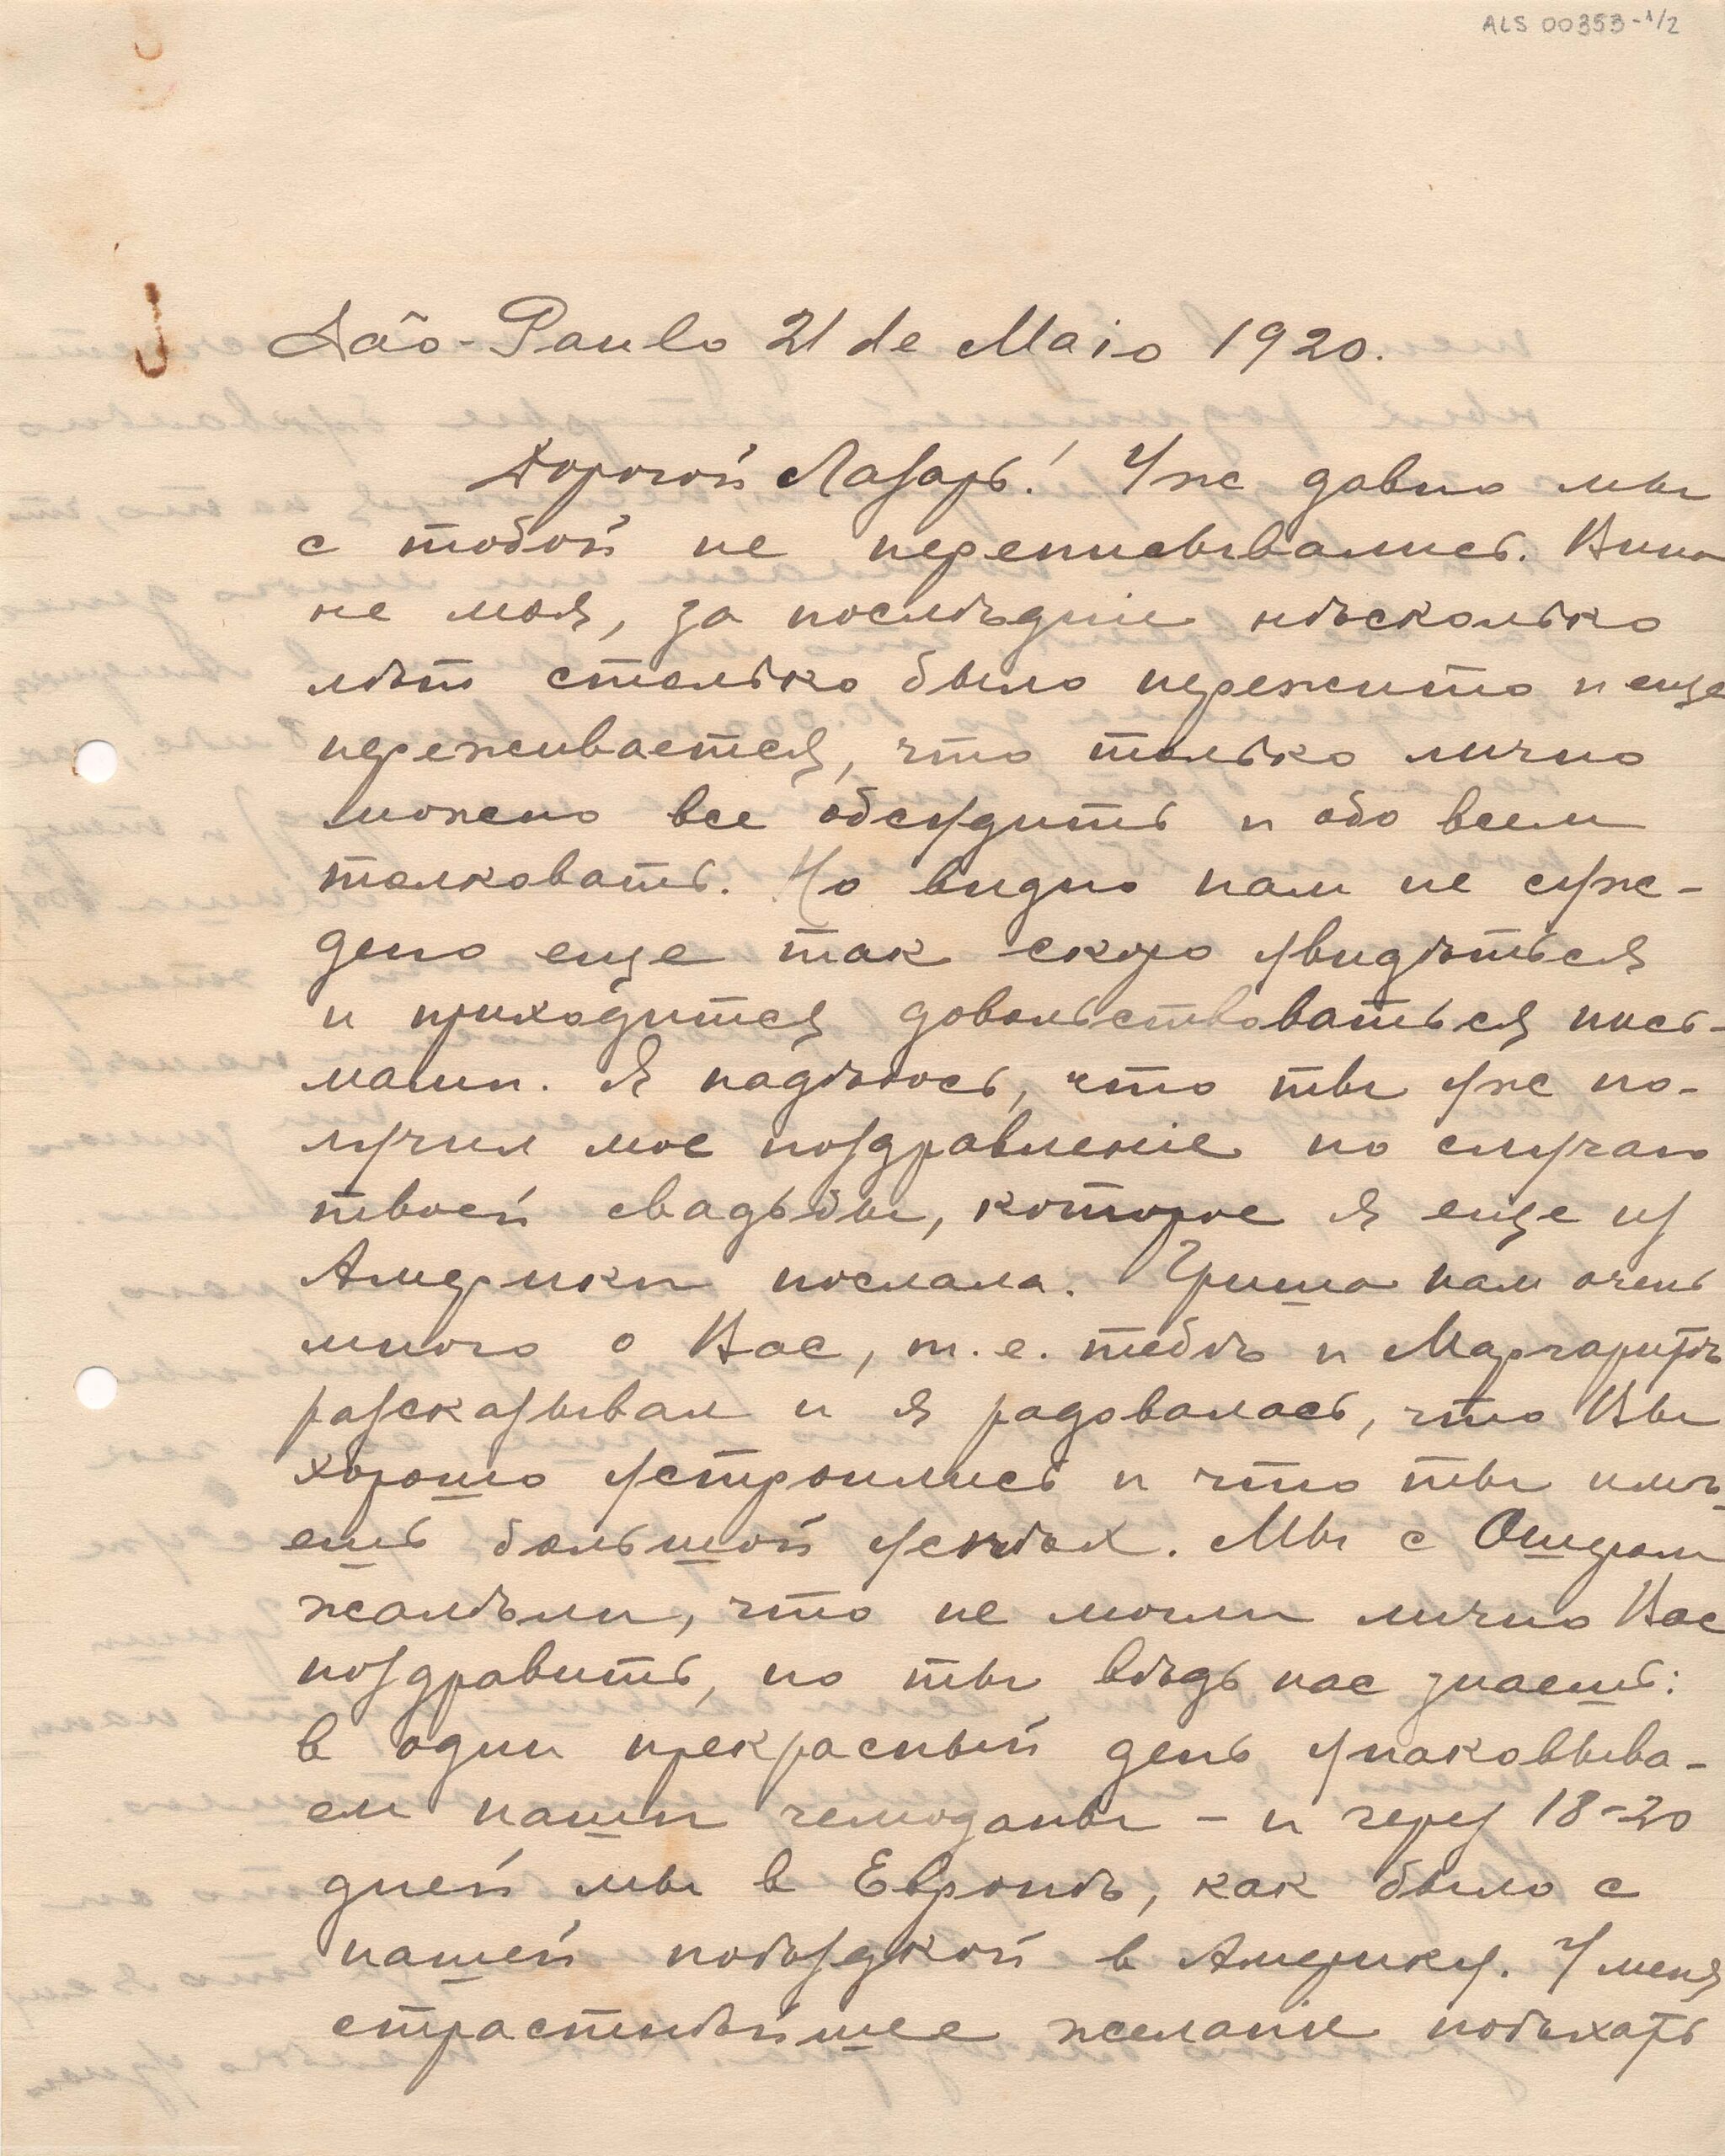 ALS 00353-1/2
São-Paulo 21 de Maio 1920.
Дорогой Лазарь! Уже давно мы
с тобой не переписывались. Вина
не моя, за послѣднiе нѣсколько
лѣт столько было пережито и еще
переживается, что только лично
можно все обсудить и обо всем
толковать. Но видно нам не суж-
дено еще так скоро увидѣться
и приходится довольствоваться пись-
мами. Я надѣюсь, что ты уже по-
лучил мое поздравленiе по случаю
твоей свадьбы, которое я еще из
Америки послала. Гриша нам очень
много о Вас, т.е. тебѣ и Маргаритѣ
разсказывал и я радовалась, что Вы
хорошо устроились и что ты имѣ-
ешь большой успѣх. Мы с Ошером
жалѣли, что не могли лично Вас
поздравить, но ты вѣдь нас знаешь:
в один прекрасный день упаковыва-
ем наши чемоданы – и через 18-20
дней мы в Европѣ, как было с
нашей поѣздкой в Америку. У меня
страстнѣйшее желанiе поѣхать